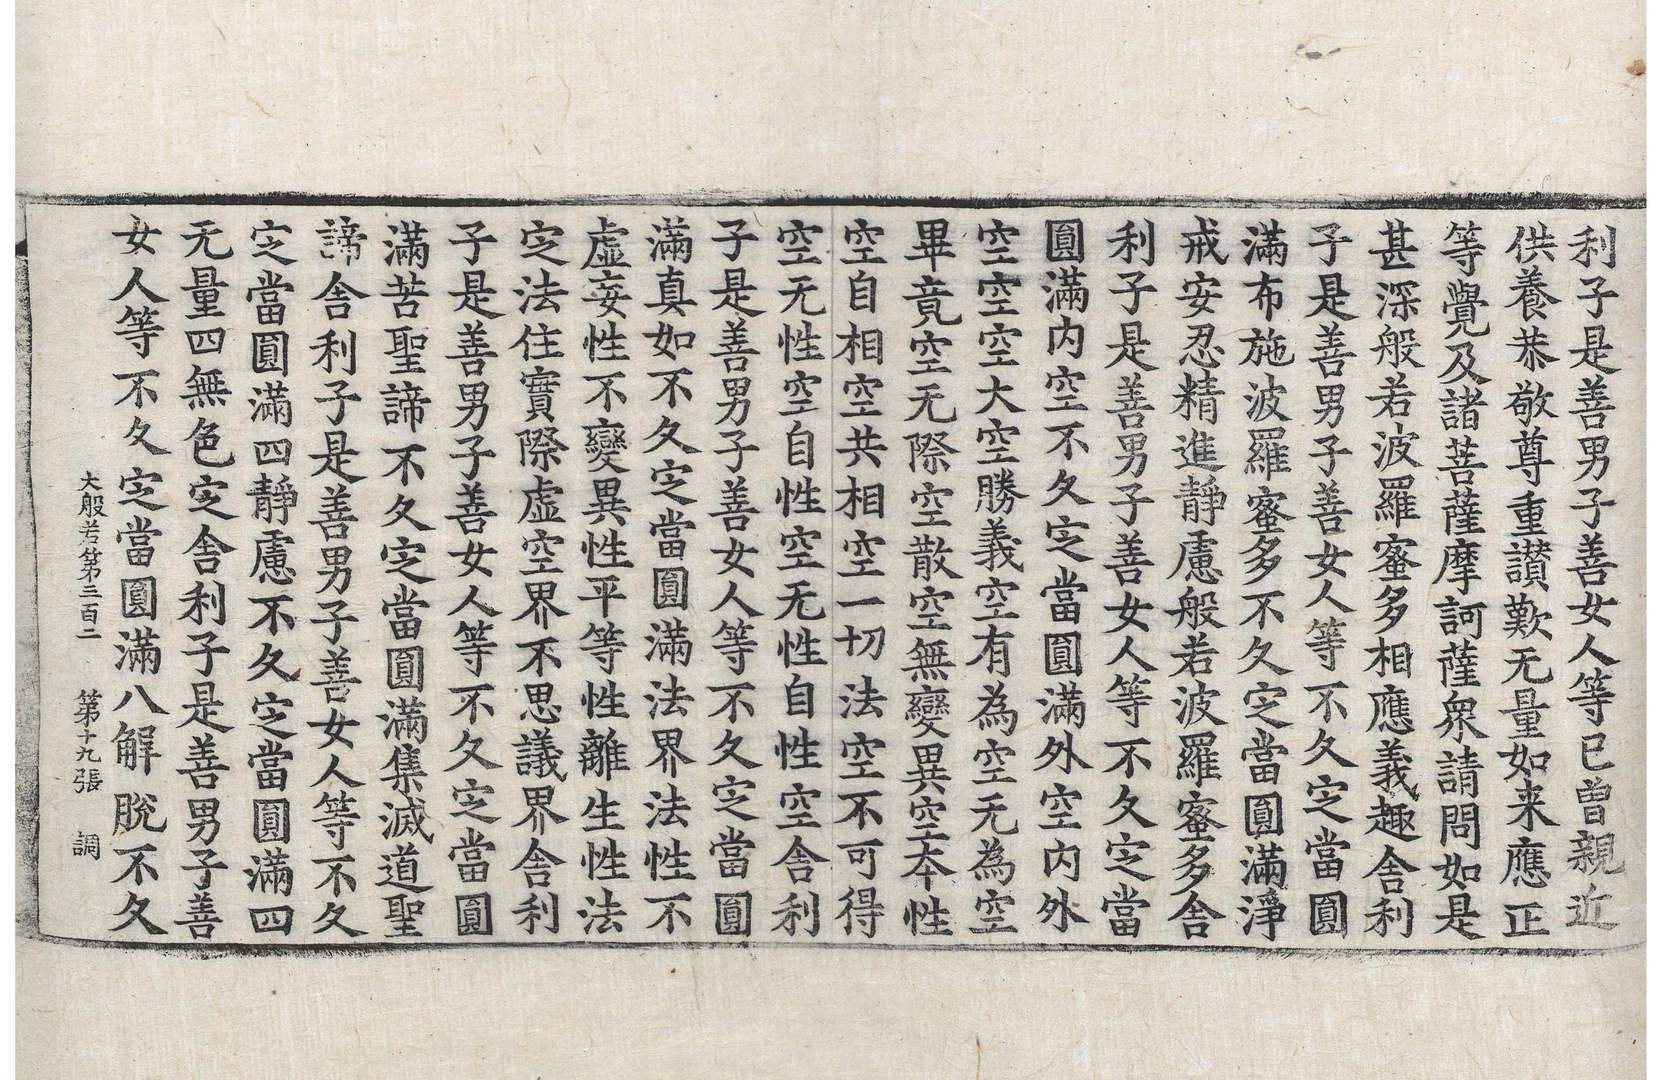 利子是善男子善女人等已曾親近
供養恭敬尊重讃歎无量如来應正
等覺及諸菩薩摩訶薩衆請問如是
甚深般若波羅蜜多相應義趣舍利
子是善男子善女人等不久定當圓
滿布施波羅蜜多不久定當圓滿淨
戒安忍精進靜慮般若波羅蜜多舍
利子是善男子善女人等不久定當
圓滿内空不久定當圓滿外空内外
空空空大空勝義空有為空无為空
畢竟空无際空散空無變異空本性
空自相空共相空一切法空不可得
空无性空自性空无性自性空舍利
子是善男子善女人等不久定當圓
滿真如不久定當圓滿法界法性不
虛妄性不變異性平等性離生性法
定法住實際虛空界不思議界舍利
子是善男子善女人等不久定當圓
滿苦聖諦不久定當圓滿集滅道聖
諦舍利子是善男子善女人等不久
定當圓滿四靜慮不久定當圓滿四
无量四無色定舍利子是善男子善
女人等不久定當圓滿八解脫不久
大般若第三百二 第十九張 調